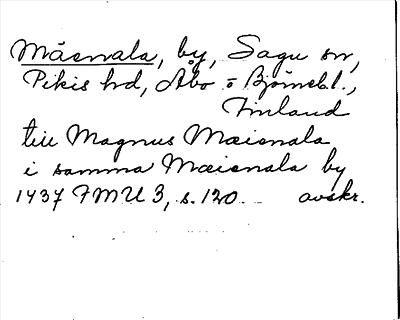 Måsnala, by, Sagu sn,
Pikis hd, Åbo o Björnebl.,
Finland
till Magnus Mæisnala
i samma Mæisnala by
1437 FMU 3, s. 120 avskr.